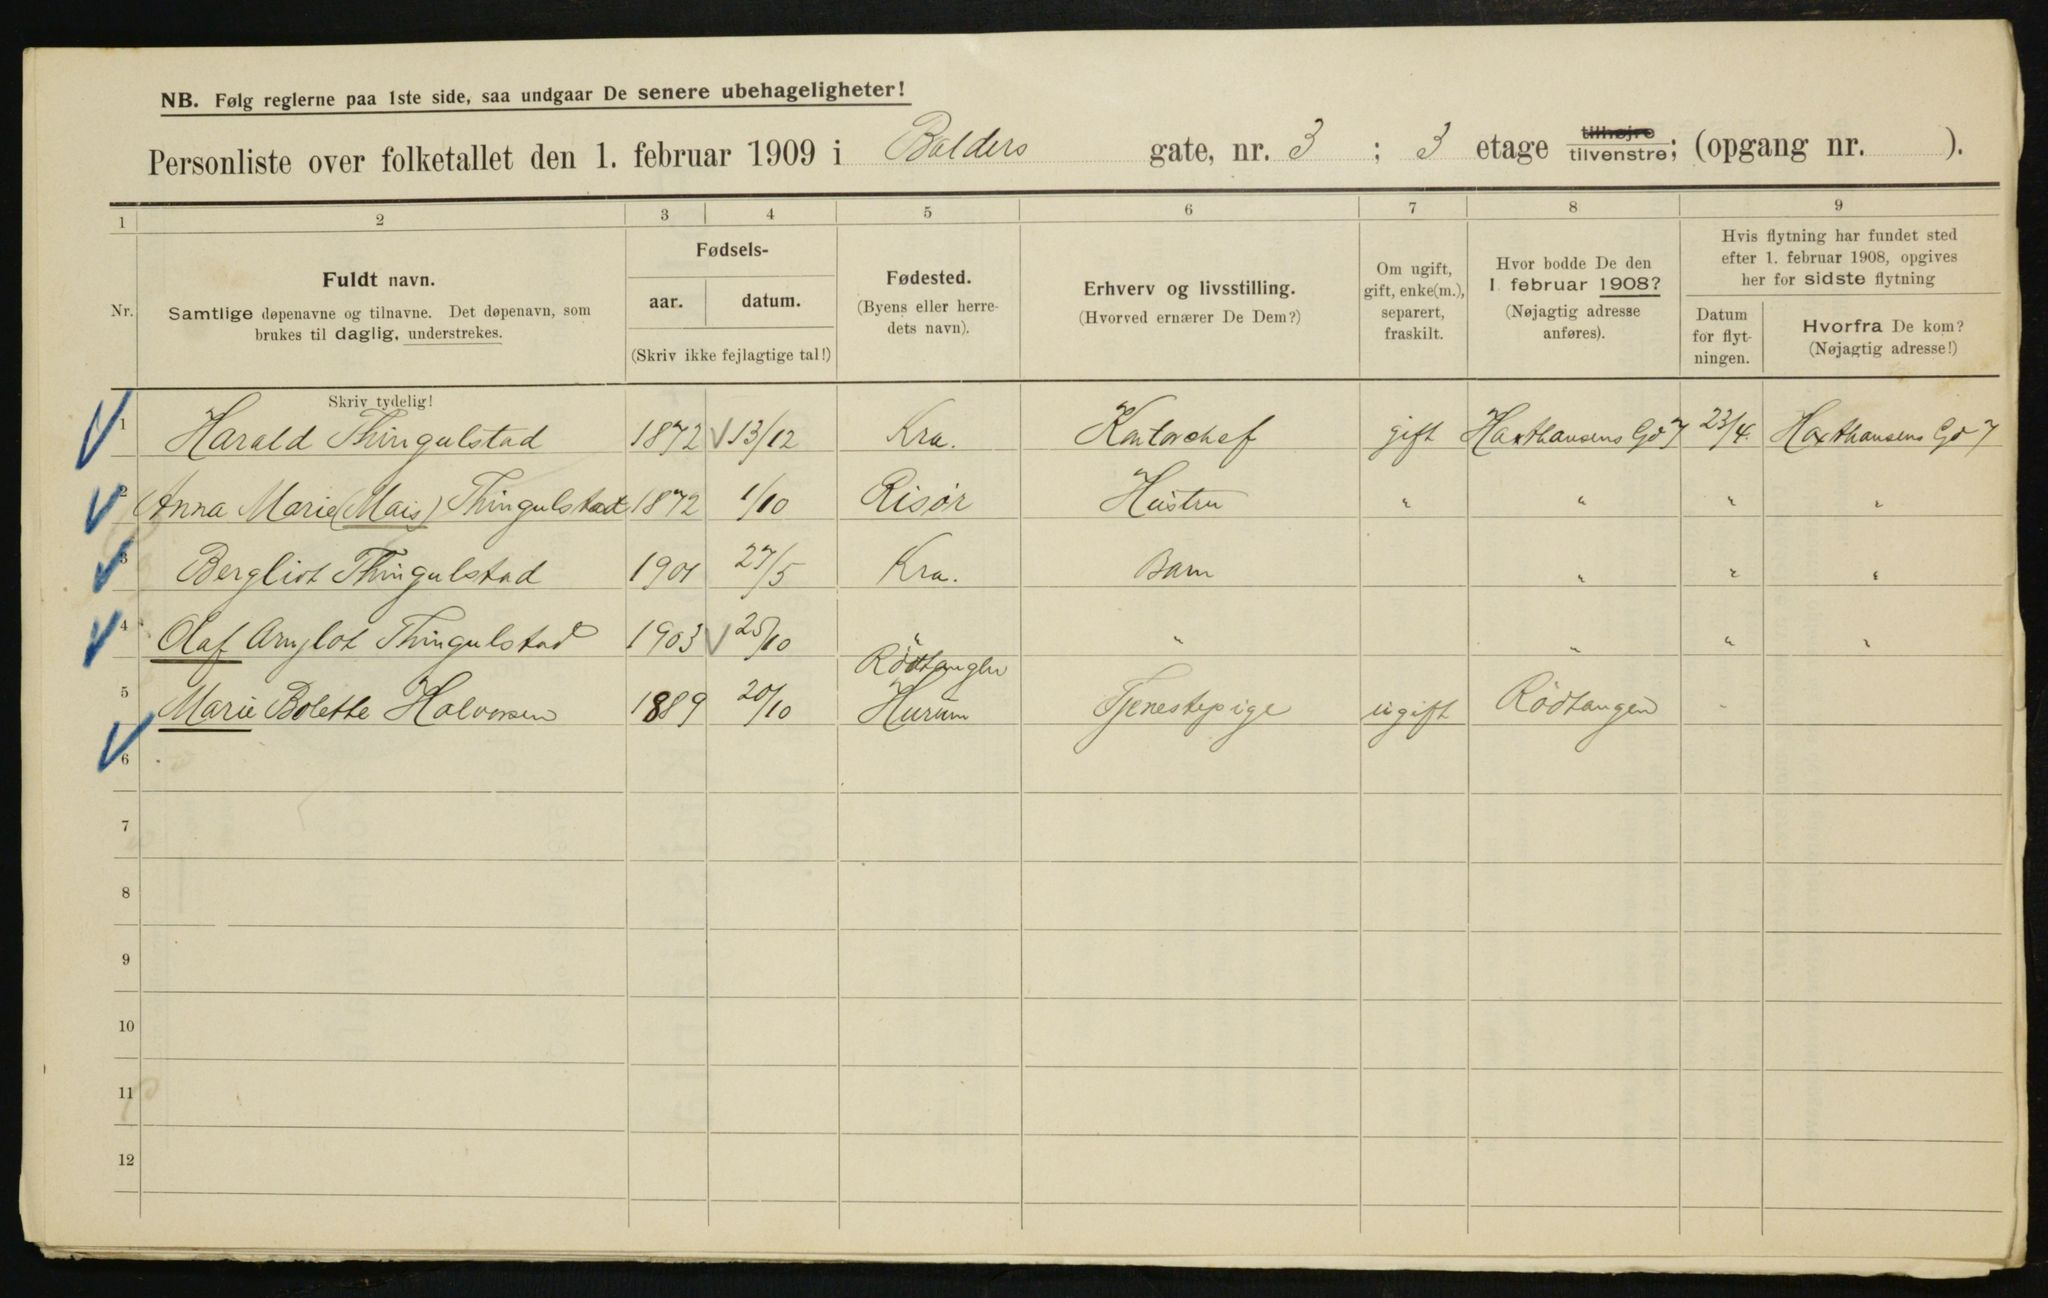 NB. Følg reglerne paa 1ste side, saa undgaar De senere ubehageligheter!
Personliste over folketallet den 1. februar 1909 i Balders gate, nr. 3 ; 3 etage tilhøjre tilvenstre; (opgang nr. ).
1 2 3 4 5 6 7 8 9
Nr.
Fuldt navn.
Samtlige døpenavne og tilnavne. Det døpenavn, som
brukes til daglig, understrekes.
Skriv tydelig!
Fødsels-
aar. datum.
(Skriv ikke fejlagtige tal!)
Fødested.
(Byens eller herre-
dets navn).
Erhverv og livsstilling.
(Hvorved ernærer De Dem?)
Om ugift,
gift, enke(m.),
separert,
fraskilt.
Hvor bodde De den
1. februar 1908?
(Nøjagtig adresse
anføres).
Hvis flytning har fundet sted
efter 1. februar 1908, opgives
her for sidste flytning
Datum
for flyt-
ningen.
Hvorfra De kom?
(Nøjagtig adresse!)
1 Harald Thingulstad 1872 13/12 Kra. Kontorchef gift Haxthausens Gd 7 23/4. Haxthausens Gd 7
2 Anna Marie (Mais) Thingulstad 1872 1/10 Risør Hustru " " " "
3 Bergliot Thingulstad 1901 27/5 Kra. Barn " " "
4 Olaf Arnljot Thingulstad 1903 25/10 " " " " "
5 Marie Bolette Halvorsen 1889 20/10 Rödtangen Hurum Tjenestepige ugift Rödtangen -
6
7
8
9
10
11
12